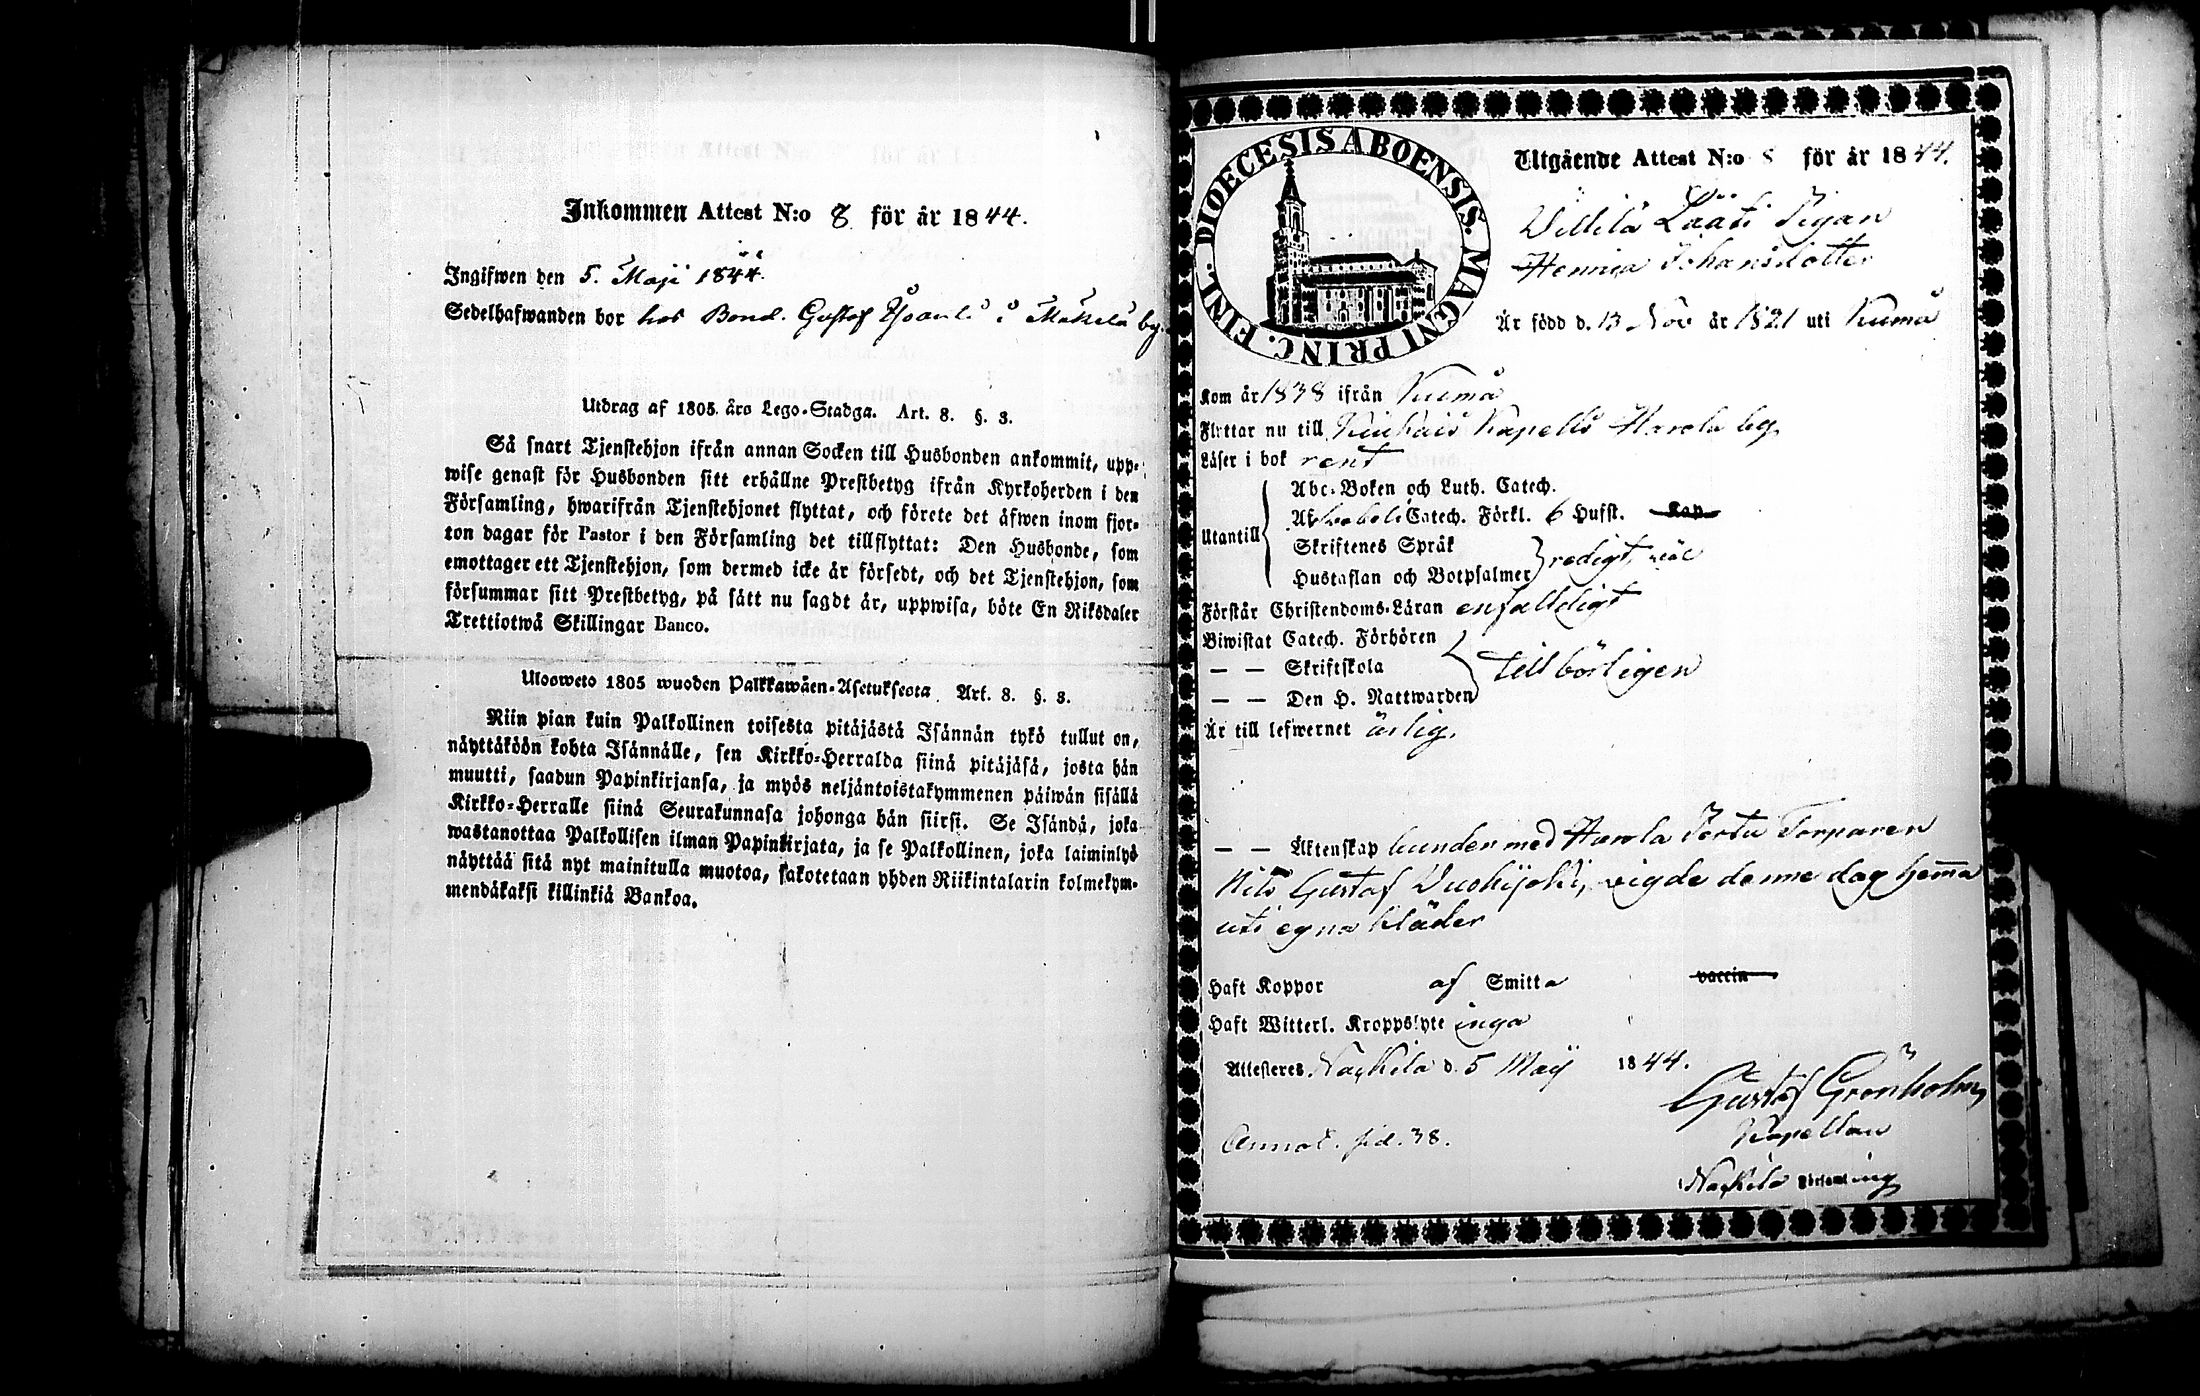 Inkommen Attest N:o 8 för år 1844.
Ingifwen den 5. Maji 1844.
Sedelhafwanden bor hos Bond. Gustaf i Mäkelä by.
Utdrag af 1805. års Lego-Stadga. Art. 8. §. 3.
Så snart Tjenstehjon ifrån annan Socken till Husbonden ankommit, upp-
wise genast för Husbonden sitt erhållne Prestbetyg ifrån Kyrkoherden i den
Församling, hwarifrån Tjenstehjonet flyttat, och förete det äfwen inom fjor-
ton dagar för Pastor i den Församling det tillflyttat: Den Husbonde, som
emottager ett Tjenstehjon, som dermed icke är försedt, och det Tjenstehjon, som
försummar sitt Prestbetyg, på sätt nu sagdt är, uppwisa, böte En Riksdaler
Trettiotwå Skillingar Banco.
Ulosweto 1805 wuoden Palkkawäen-Asetuksesta. Art. 8. §. 3.
Niin pian kuin Palkollinen toisesta pitäjästä Isännän tykö tullut on,
näyttäköön kohta Isännälle, sen Kirkko-Herralda siinä pitäjäsä, josta hän
muutti, saadun Papinkirjansa, ja myös neljäntoistakymmenen päiwän sisällä
Kirkko-Herralle siinä Seurakunnasa johonga hän siirsi. Se Isändä, joka
wastanottaa Palkollisen ilman Papinkirjata, ja se Palkollinen, joka laiminlyö
näyttää sitä nyt mainitulla muotoa, sakotetaan yhden Riikintalarin kolmekym-
mendäkaksi killinkiä Bankoa.
DIOECESIS ABOENSIS. MAGNI PRINC. FINL.
Utgående Attest N:o 8 för år 1844.
Willilä Lääti Pigan
Henrica Johansdotter
Är född d. 13 Nov år 1821 uti Kumå
Kom år 1838 ifrån Kumå
Flyttar nu till Kiukais Kapells Harola by
Läser i bok rent
Utantill
Abc-Boken och Luth. Catech.
Catech. Förkl. 6 Hufst. Kap
Skriftenes Språk
Hustaflan och Botpsalmer redigt, wäl
Förstår Christendoms-Läran enfaldigt
Biwistat Catech. Förhören
— — Skriftskola tillbörligen
— — Den H. Nattwarden
Är till lefwernet ärlig.
— — Äktenskap bunden med Harola Torparen
Nils Gustaf wigde denne dag hemma
uti egna kläder
Haft Koppor af Smitta vaccin
Haft Witterl. Kroppslyte inga
Attesteres Nackila d. 5 Maij 1844.
Gustaf Grönholm
Kapellan
Nackila Församling
Annot. sid. 38.